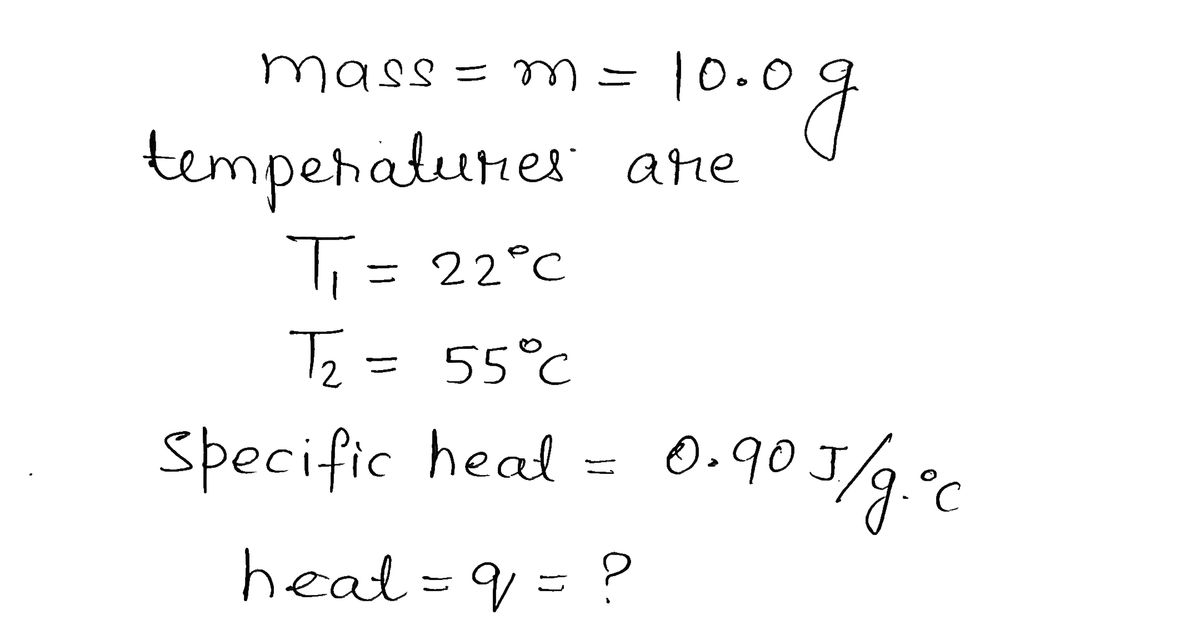 mass = m = 10.0 g
temperatures are
T₁ = 22°C
T₂ = 55°C
Specific heat = 0.90 J/g.°C
heat = q = ?